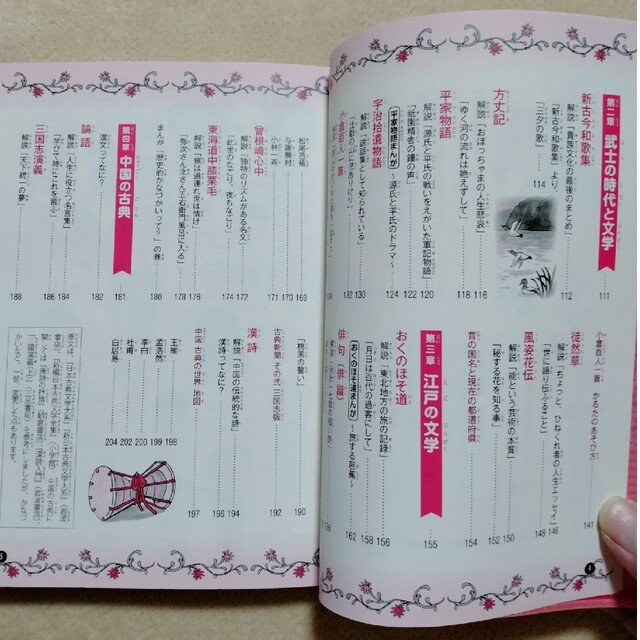 第二章 武士の時代と文学 111
新古今和歌集 112
解説「貴族文化の最後のまとめ」
「新古今和歌集」より、
「三夕の歌」 114
方丈記 116
解説「おぼっちゃまの人生悲哀」
「ゆく河の流れは絶えずして」 118
平家物語 120
解説「源氏と平氏の戦いをえがいた軍記物語」
「祇園精舎の鐘の声」 122
平家物語まんが 〜源氏と平氏のドラマ〜 124
宇治拾遺物語 130
解説「説話集」として知られている」
132
小倉百人一首
小倉百人一首 かるたのあそび方 141
徒然草
解説「ちょっと、ひねくれ者の人生エッセイ」 146
「世に語り伝ふること」 148
風姿花伝
解説「能という芸術の本質」 150
「秘する花を知る事」 152
昔の国名と現在の都道府県 154
第三章 江戸の文学 155
おくのほそ道
解説「東北地方の旅の記録」 156
「月日は百代の過客にして」 158
おくのほそ道まんが 〜旅する芭蕉〜 162
俳句(俳諧)
4
松尾芭蕉 169
与謝蕪村 170
小林一茶 171
曽根崎心中
解説「独特のリズムがある名文」 172
「此世のなごり、夜もなごり」 174
東海道中膝栗毛
解説「旅は道連れ世は情け」 176
「弥次さん北さん、五右衛門風呂に入る」 178
まんが「歴史的かなづかいって?」の巻 180
第四章 中国の古典 181
漢文ってなに? 182
論語
解説「人生に役立つ名言集」 184
「学びて時にこれを習ふ」 186
三国志演義
解説「天下統一の夢」 188
「桃園の誓い」 190
古典新聞 その弐 三国志版 192
漢詩
解説「中国の伝統的な詩」 194
漢詩ってなに? 196
中国 古典の世界 地図 197
王維 198
孟浩然 199
李白 200
杜甫 202
白居易 204